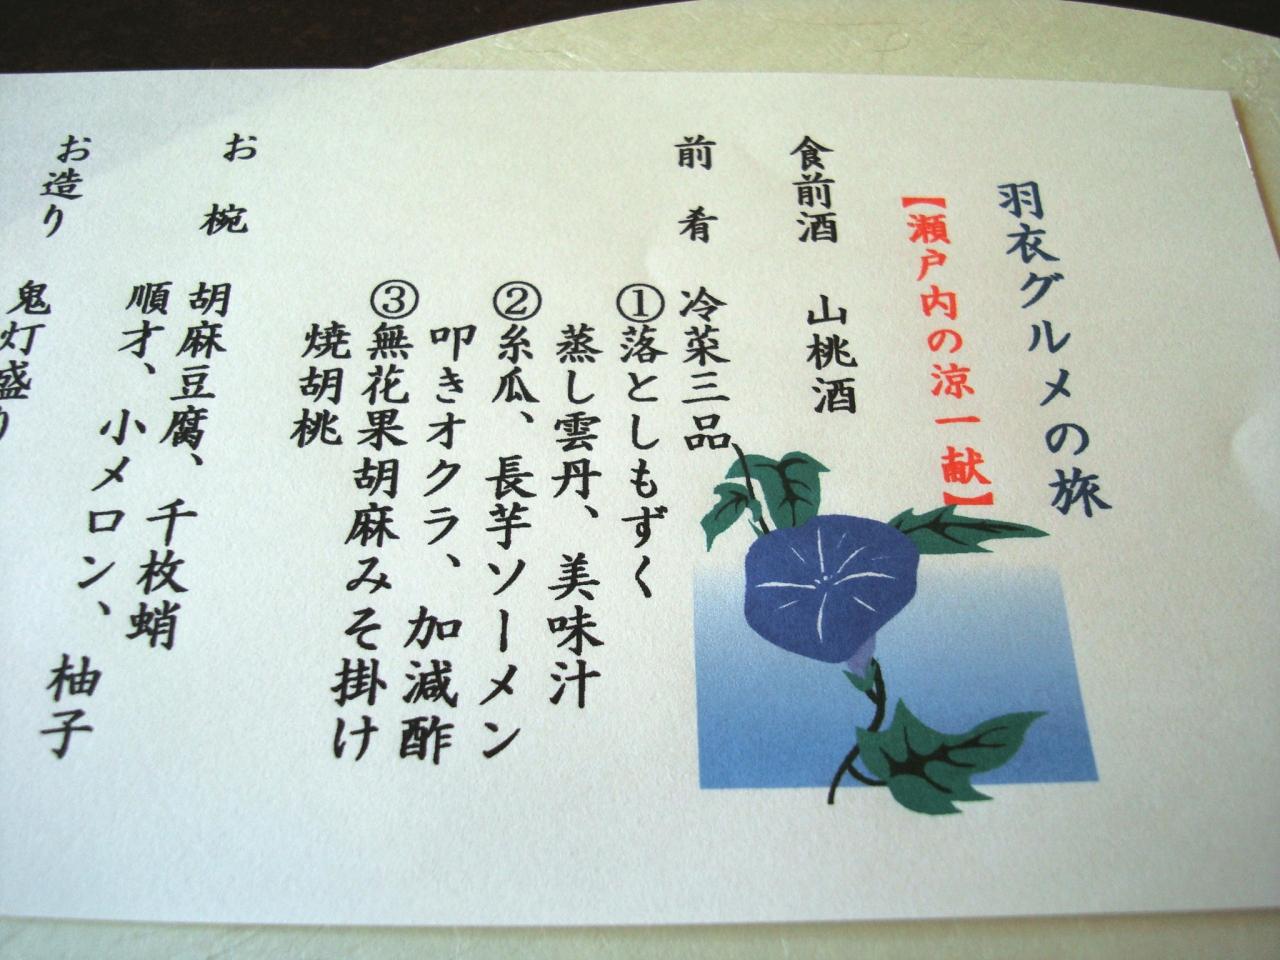 羽衣グルメの旅
【瀬戸内の涼一献】
食前酒 山桃酒
前肴 冷菜三品
①落としもずく
蒸し雲丹、美味汁
②糸瓜、長芋ソーメン
叩きオクラ、加減酢
③無花果胡麻みそ掛け
焼胡桃
お椀 胡麻豆腐、千枚蛸
順才、小メロン、柚子
お造り 鬼灯盛り